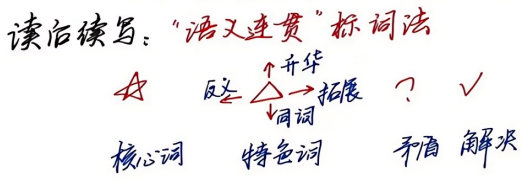 读后续写：“语义连贯”标词法
☆ 反义 ← △ ↑升华 → 拓展 ↓同词 ? ✓
核心词 特色词 矛盾 解决